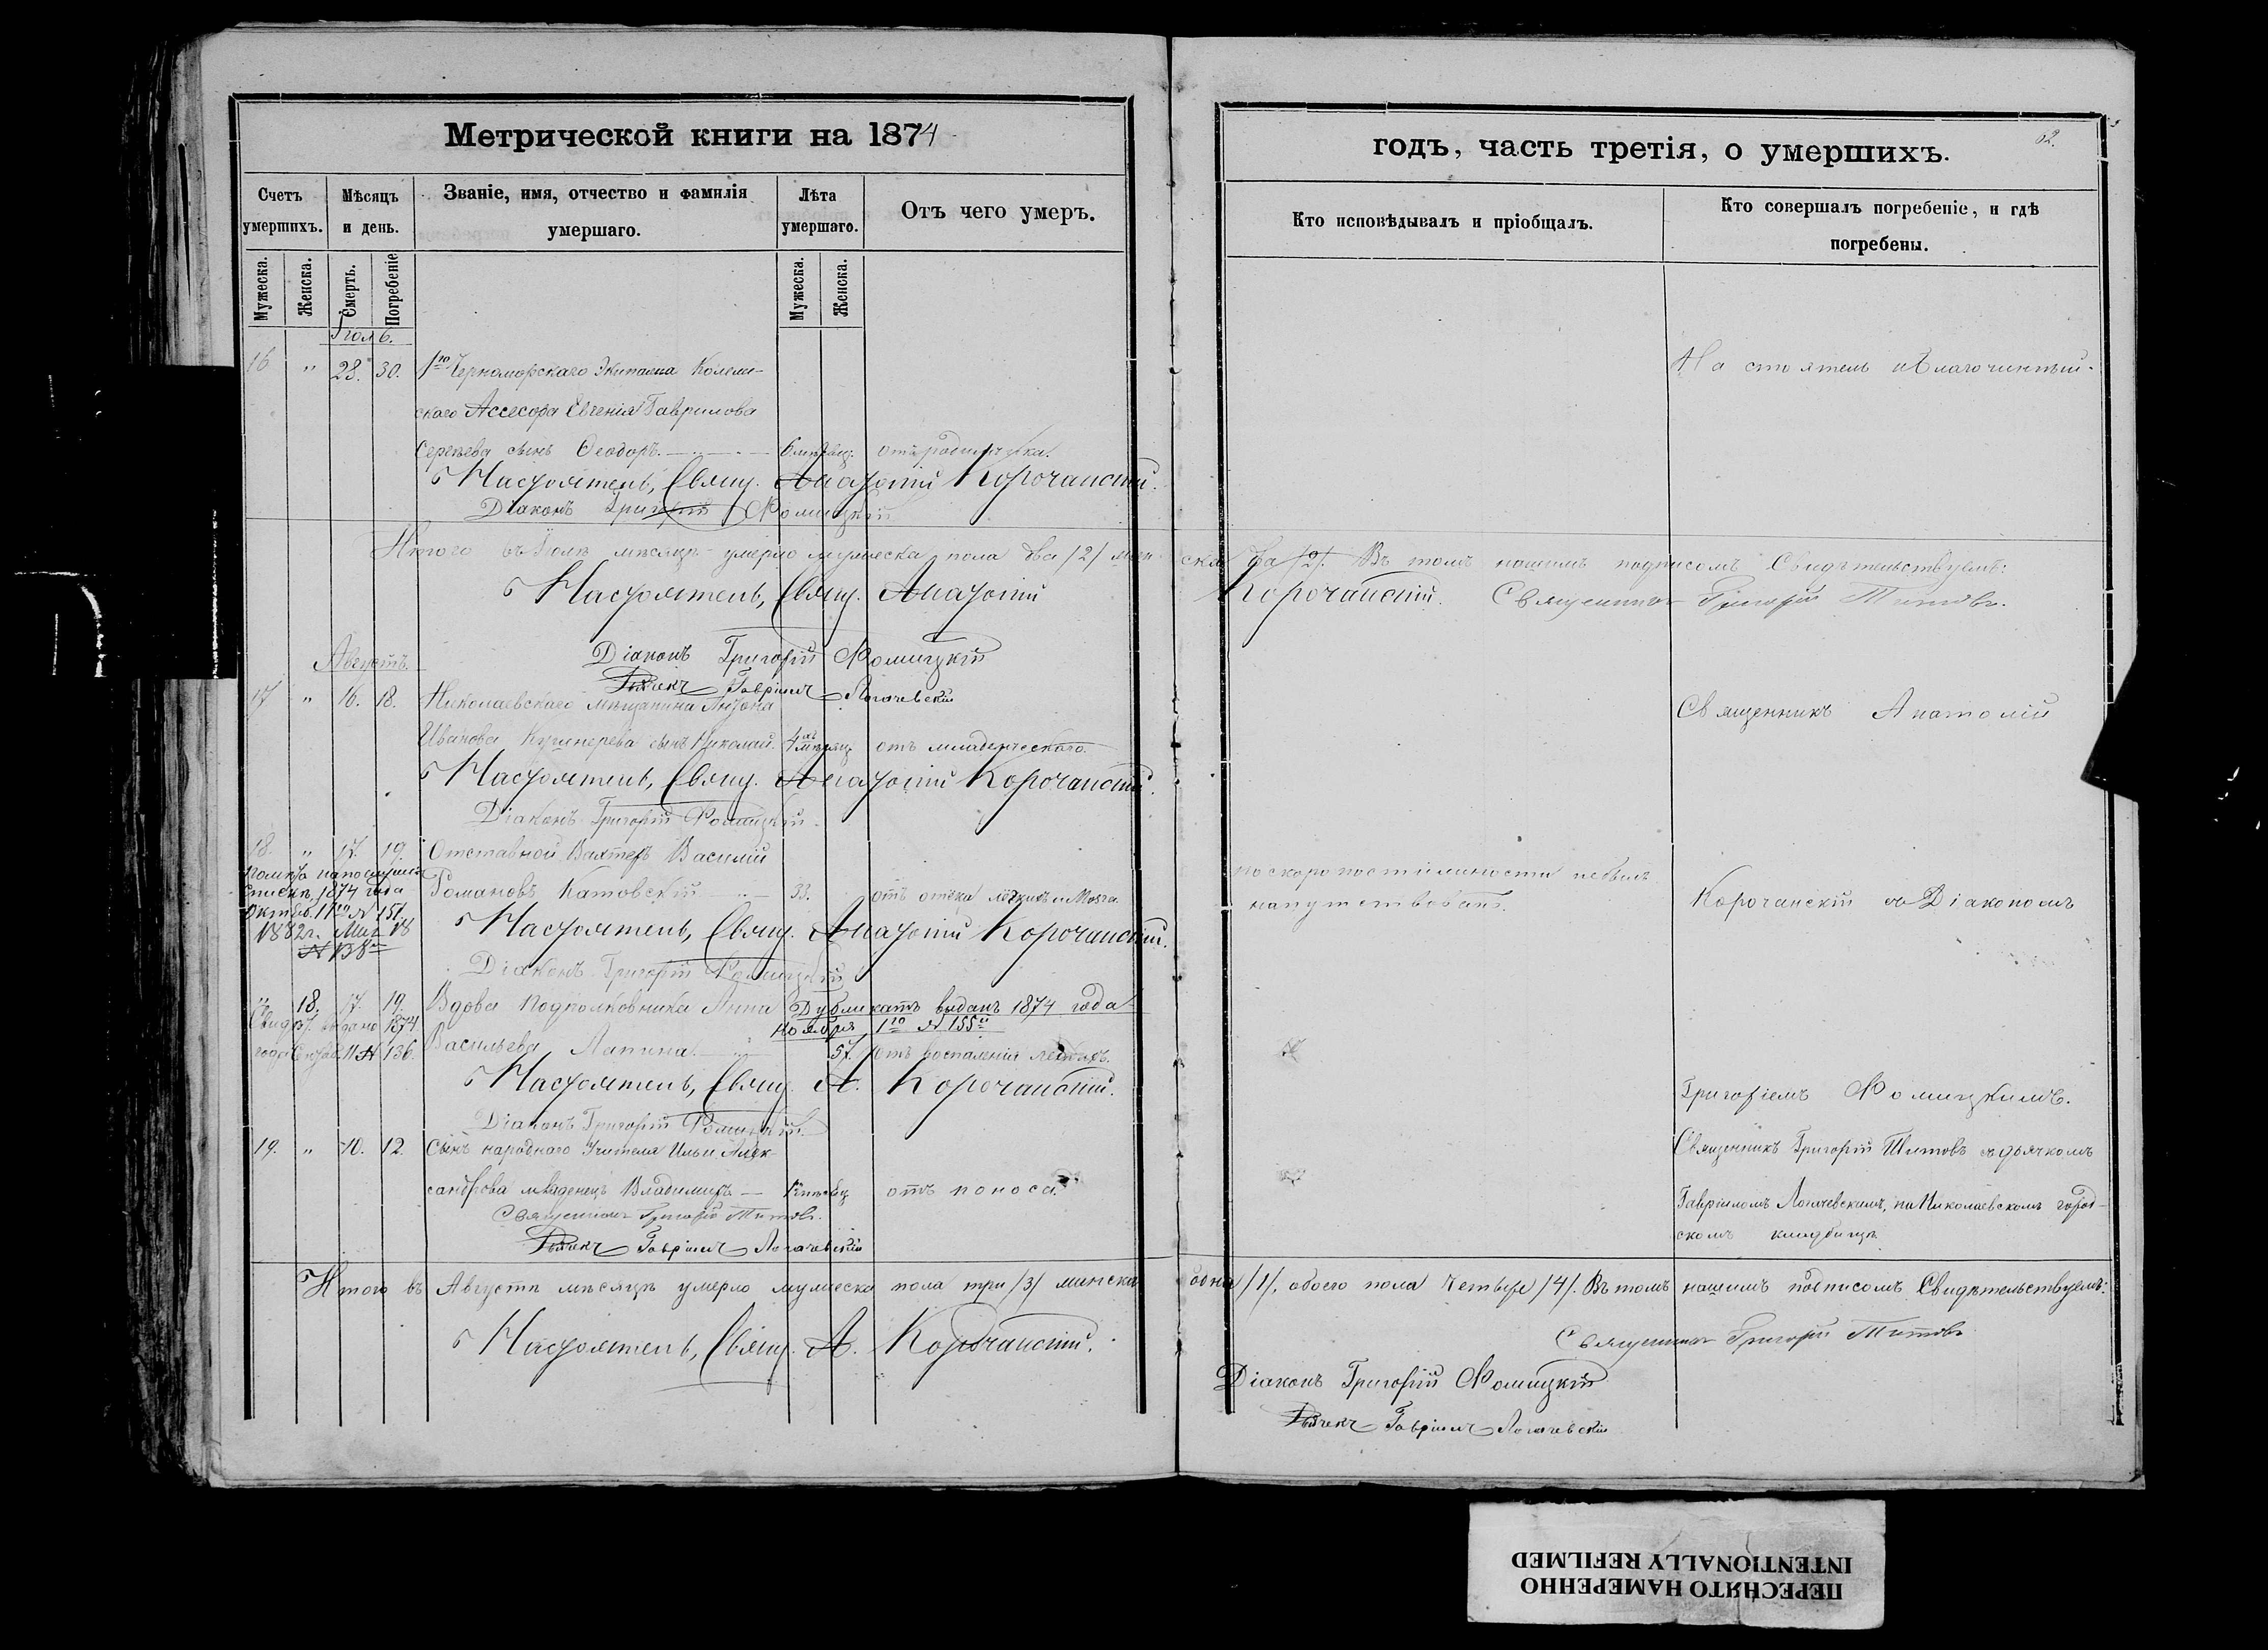 Метрической книги на 1874
годъ, часть третія, о умершихъ.
Счетъ умершихъ.
Мѣсяцъ и день.
Званіе, имя, отчество и фамилія умершаго.
Лѣта умершаго.
Отъ чего умеръ.
Кто исповѣдывалъ и пріобщалъ.
Кто совершалъ погребеніе, и гдѣ погребены.
Мужеска.
Женска.
Смерть.
Погребеніе
Мужеска.
Женска.
16 " 28. 30. 1го Черноморскаго Экипажа
Настоятель и Благочинный.
скаго Ассесора Евгенія Гаврилова
сынъ Ѳеодоръ.
Настоятель, Свящ. Анатолій Корочанскій.
Діаконъ Григорій Ромицкій
Итого въ Іюлѣ мѣсяцѣ умерло мужеска пола два /2/ женска два /2/. Въ томъ нашимъ подписомъ Свидѣтельствуемъ:
Настоятель, Свящ. Анатолій Корочанскій. Священникъ Григорій Титовъ.
Діаконъ Григорій Ромицкій
Августъ
Дьячекъ Гавріилъ Логачевскій
17 " 16. 18. Николаевскаго мѣщанина Антона
Священникъ Анатолій
Иванова сынъ Николай. отъ младенческаго
Настоятель, Свящ. Анатолій Корочанскій.
Діаконъ Григорій Ромицкій
18. " 17. 19. Отставной Вахтеръ Василій
по скоропостижности небылъ
1874 года
Романовъ Катовскій 33. отъ отека легкихъ и мозга
напутствованъ.
Корочанскій съ Діакономъ
№ 151.
1882 г. 18
Настоятель, Свящ. Анатолій Корочанскій.
№ 138
Діаконъ Григорій Ромицкій
" 18. 17. 19. Вдова Подполковника Анна
Дубликатъ выданъ 1874 года
Ноября 1го № 155
Свид. выдано 1874
года 11 № 136.
Васильева Лапина 57. отъ воспаленія легкихъ.
Настоятель, Свящ. А. Корочанскій.
Григоріемъ Ромицкимъ.
Діаконъ Григорій Ромицкій
19. " 10. 12. Сынъ народнаго Учителя Ильи Алек-
Священникъ Григорій Титовъ съ дьячкомъ
сандрова младенецъ Владимиръ отъ поноса
Гавріиломъ Логачевскимъ, на Николаевскомъ город-
Священникъ Григорій Титовъ.
скомъ кладбищѣ
Дьячекъ Гавріилъ Логачевскій
Итого въ Августѣ мѣсяцѣ умерло мужеска пола три /3/ женска одна /1/, обоего пола четыре /4/. Въ томъ нашимъ подписомъ Свидѣтельствуемъ:
Настоятель, Свящ. А. Корочанскій.
Священникъ Григорій Титовъ
Діаконъ Григорій Ромицкій
Дьячекъ Гавріилъ Логачевскій
ПЕРЕСНЯТО НАМЕРЕННО
INTENTIONALLY REFILMED